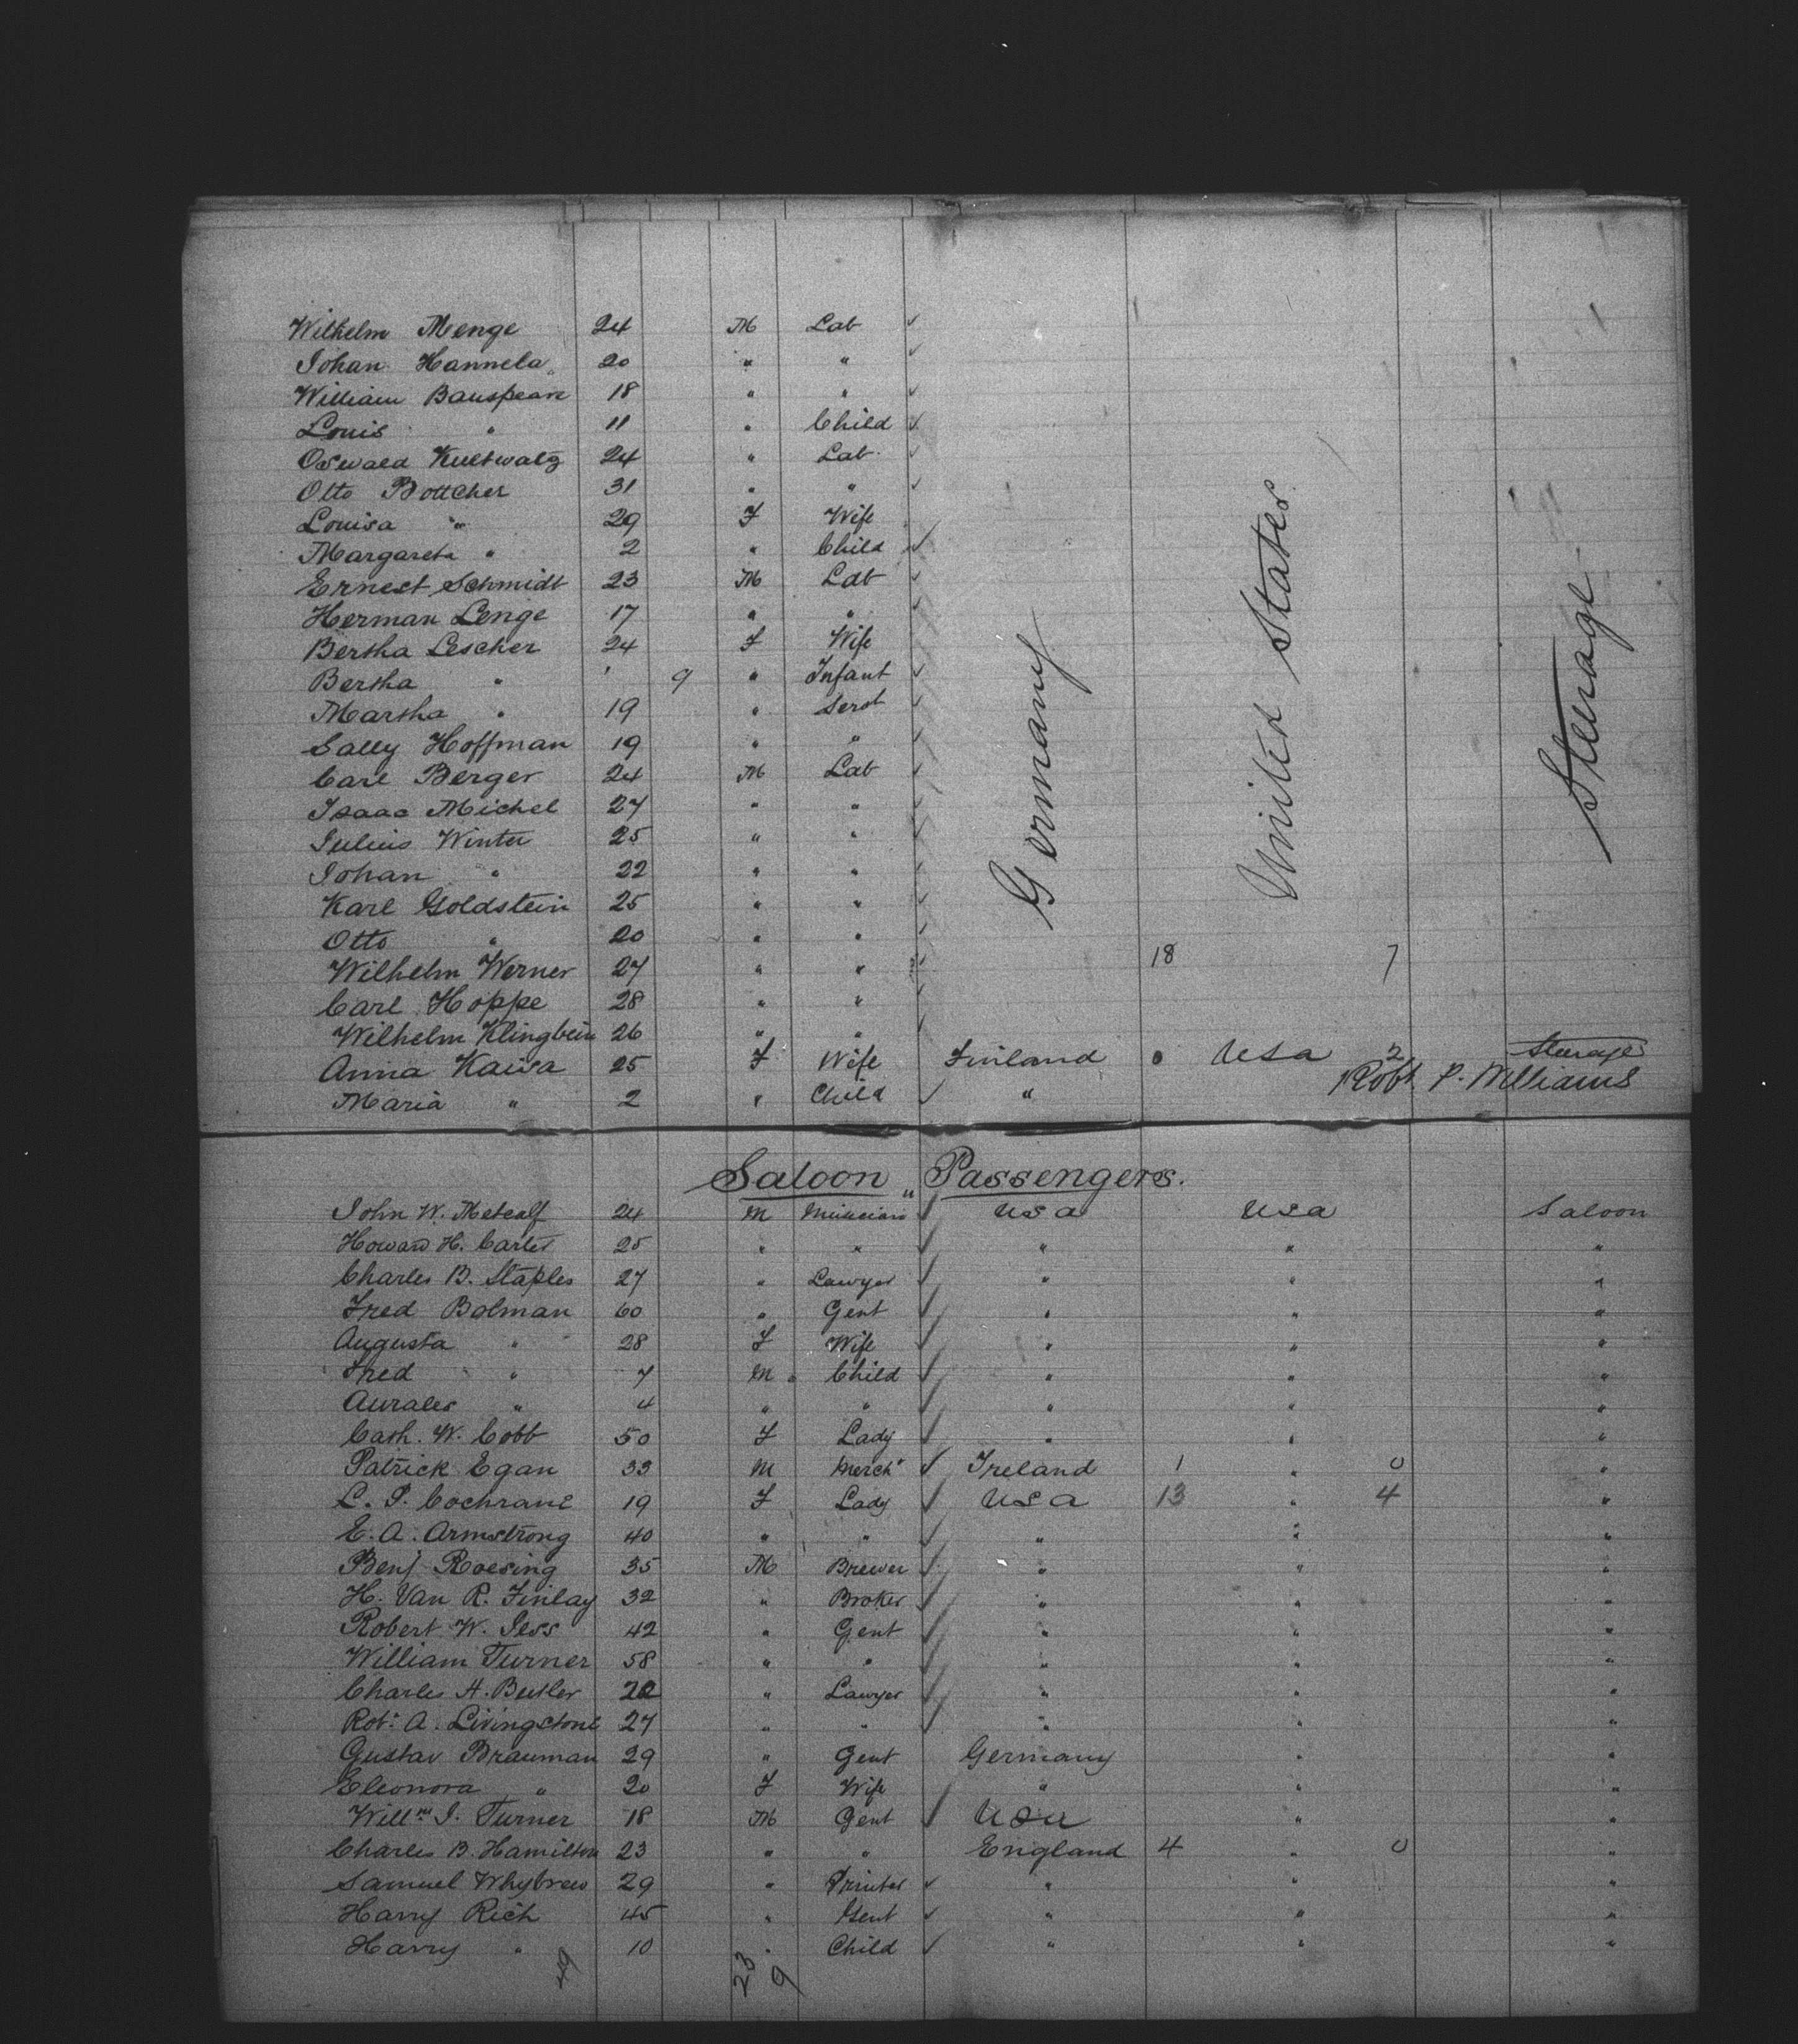 Wilhelm Menge 24 M Lab
Johan Hannela 20 " "
William Bauspean 18 " "
Louis " 11 " Child
Oswald Kultwatz 24 " Lab
Otto Bottcher 31 " "
Louisa " 29 F Wife
Margareta " 2 " Child
Ernest Schmidt 23 M Lab
Herman Lenge 17 " "
Bertha Lescher 24 F Wife
Bertha " ' 9 " Infant
Martha " 19 " Servt
Sally Hoffman 19 " "
Carl Berger 24 M Lab
Isaac Michel 27 " "
Julius Winter 25 " "
Johan " 22 " "
Karl Goldstein 25 " "
Otto " 20 " "
Germany United States Steerage
Wilhelm Werner 27 " " 18 7
Carl Hoppe 28 " "
Wilhelm Klingbein 26 " "
Anna Kaisa 25 F Wife Finland 0 USA 2 Steerage
Maria " 2 " Child "
Robt P. Williams
Saloon Passengers.
John W. Metcalf 24 M Musician USA USA Saloon
Howard H. Carter 25 " " " " "
Charles B. Staples 27 " Lawyer " " "
Fred Bolman 60 " Gent " " "
Augusta " 28 F Wife " " "
Fred " 7 M Child " " "
Aurales " 4 " " " " "
Cath. W. Cobb 50 F Lady " " "
Patrick Egan 33 M Mercht Ireland 1 " 0 "
L. P. Cochrane 19 F Lady USA 13 " 4 "
E. A. Armstrong 40 " " " " "
Benj Roesing 35 M Brewer " " "
H. Van R. Finlay 32 " Broker " " "
Robert W. Jess 42 " Gent " " "
William Turner 58 " " " " "
Charles H. Butler 22 " Lawyer " " "
Robt A. Livingstone 27 " " " " "
Gustav Brauman 29 " Gent Germany " "
Eleonora " 20 F Wife " " "
Willm J. Turner 18 M Gent USA " "
Charles B. Hamilton 23 " " England 4 " 0 "
Samuel Whybrew 29 " Printer " " "
Harry Rich 45 " Gent " " "
Harry " 10 " Child " " "
49 23 9